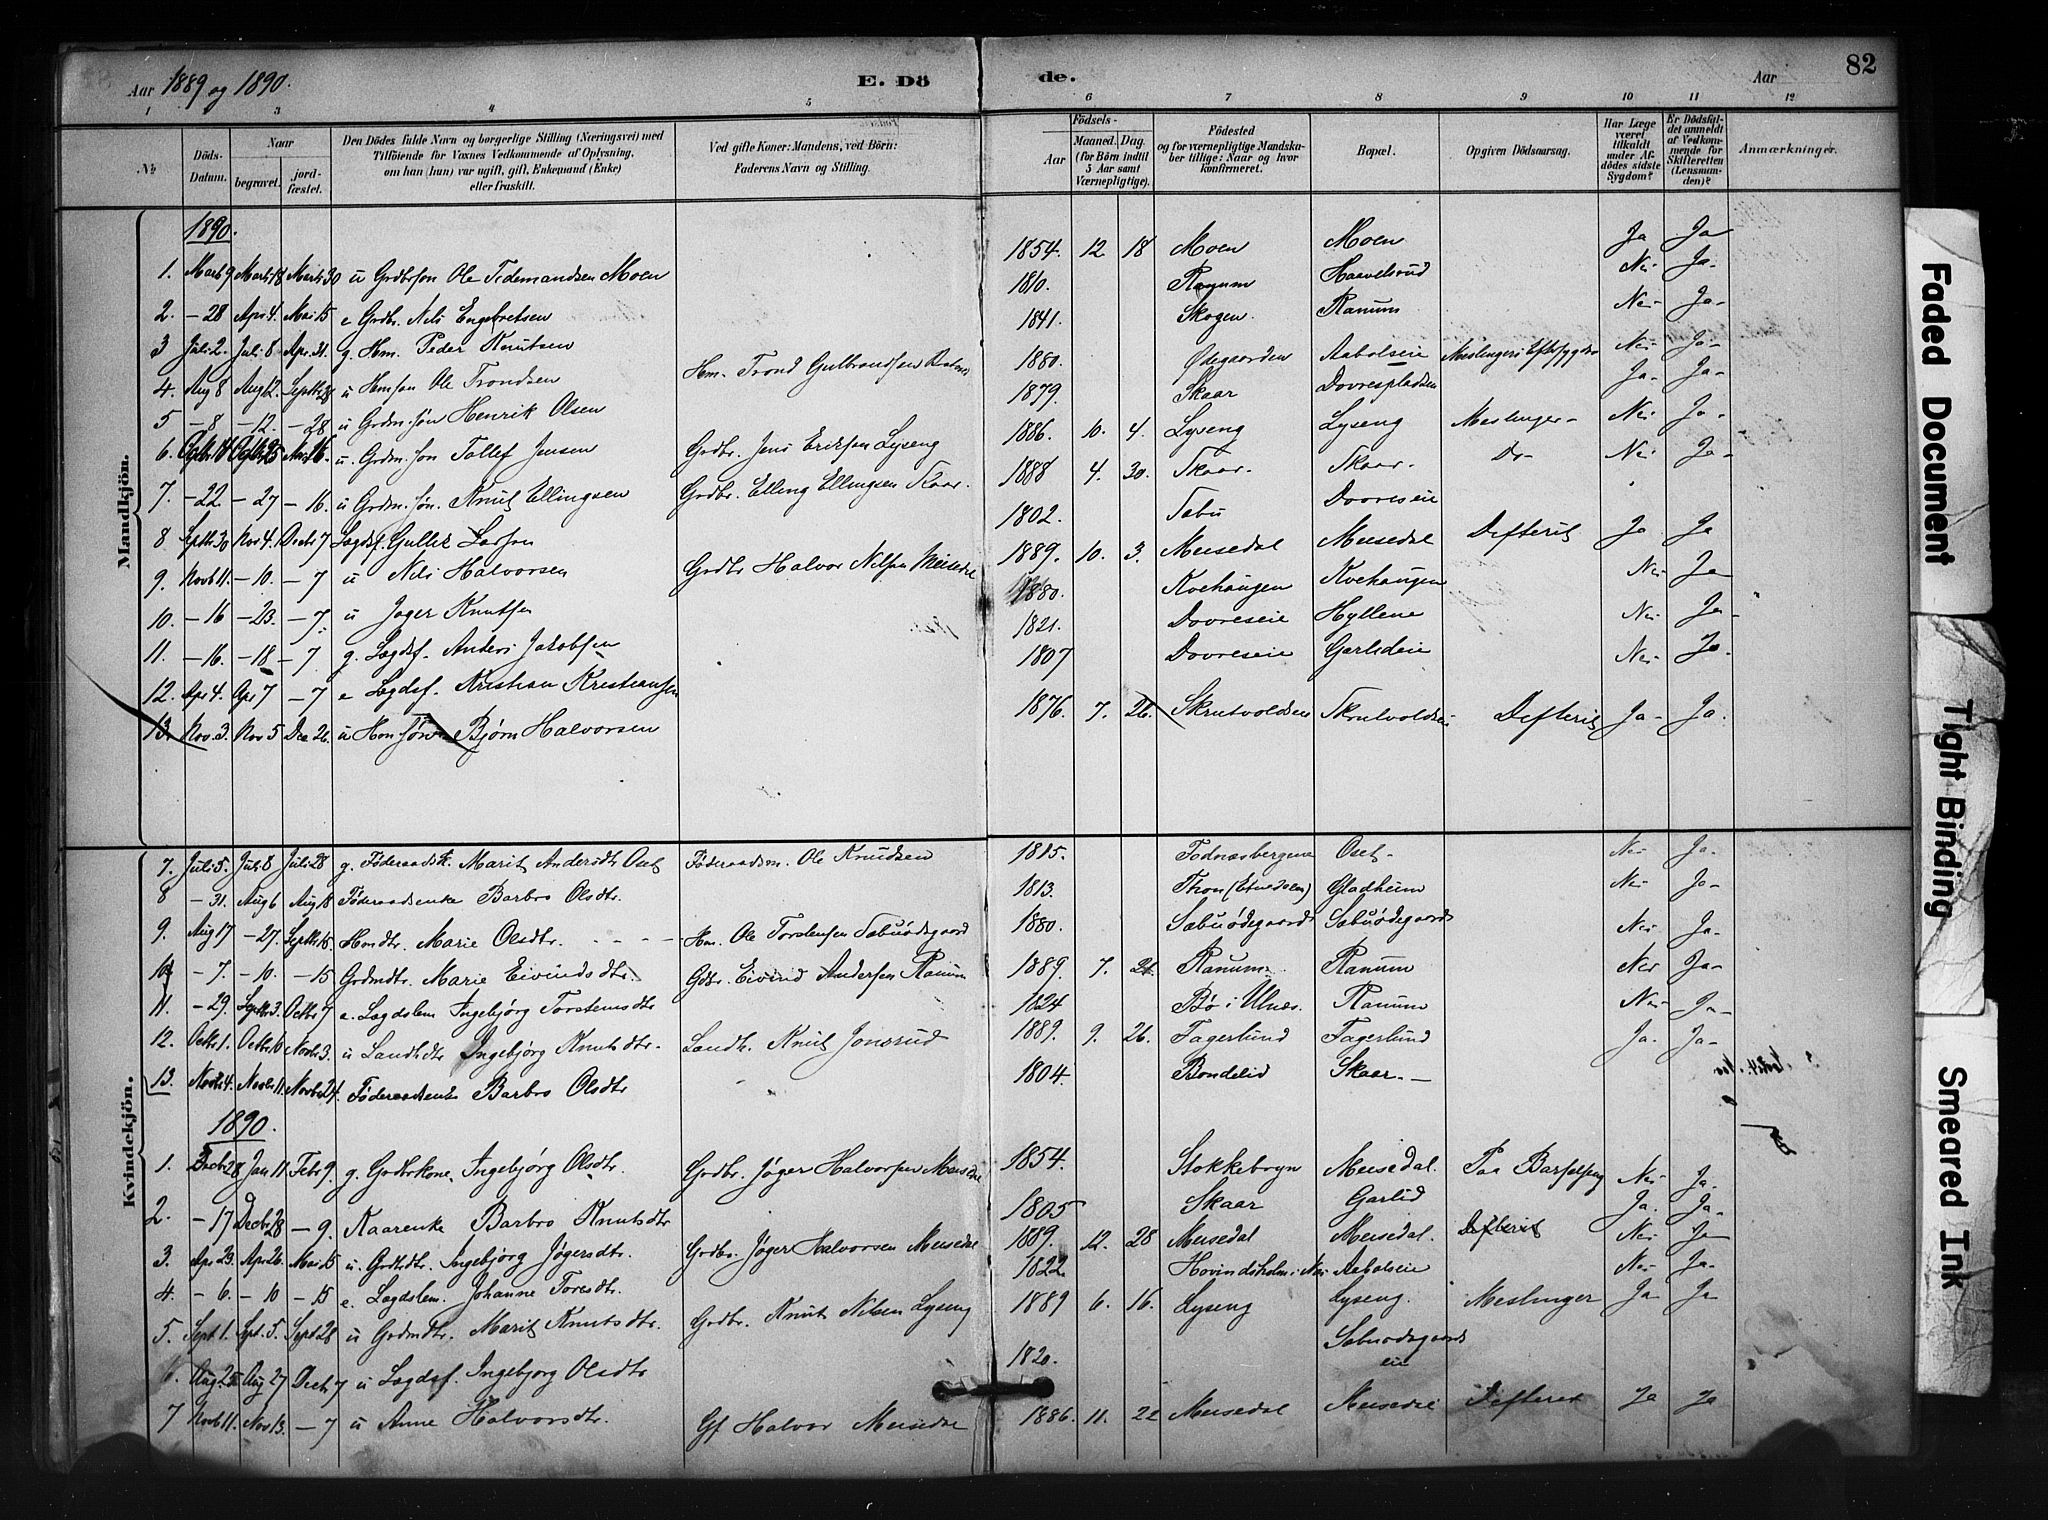 Aar 1889 og 1890. E. Dö de. Aar 82
1 3 4 5 6 7 8 9 10 11 12
No. Döds-Datum. Naar begravet. jord-fæstet. Den Dödes fulde Navn og borgerlige Stilling (Næringsvei) med Tilföiende for Voxnes Vedkommende af Oplysning, om han (hun) var ugift, gift, Enkemand (Enke) eller fraskilt. Ved gifte Koner: Mandens, ved Börn: Faderens Navn og Stilling. Födsels- Aar Maaned. Dag. (for Börn indtil 5 Aar samt Værnepligtige). Födested og for værnepligtige Mandskaber tillige: Naar og hvor konfirmeret. Bopæl. Opgiven Dödsaarsag. Har Læge været tilkaldt under Afdödes sidste Sygdom? Er Dödsfaldet anmeldt af Vedkommende for Skifteretten (Lensmanden)? Anmærkninger.
Mandkjön.
1890.
1. Marts 9 Marts 18 Marts 30 u Grdbrsøn Ole Tidemandsen Moen 1854. 12 18 Moen Moen Ja Ja
2. — 28 Apr 4. Mai 15 e Grdbr. Nils Engebretsen 1810. Ranum Haavelsrud Nei Ja
3 Juli 2. Juli 8 Apr. 31. g. Hm. Peder Knutsen 1841. Skogen Ranum Nei Ja
4. Aug 8 Aug 12. Septb 28 u Hmsøn Ole Trondsen Hm. Trond Gulbrandsen 1880. Ødegaarden Aabolseie Meslinger Nei Ja
5 — 8 — 12. — 28 u Grdm. søn Henrik Olsen 1879. Skaar Dovrespladsen Ja Ja
6. u. Grdm. søn Tollef Jensen Grdbr. Jens Eriksen Lyseng 1886. 10. 4. Lyseng Lyseng Meslinger Nei Ja
7. — 22. — 27 — 16. u Grdm. søn. Knut Ellingsen Grdbr. Elling Ellingsen Skaar. 1888 4. 30. Skaar. Skaar. Do Nei Ja
8 Septb 30 Nov 4. Decb 7 Lægdsf. Larsen 1802. Sæbu Dovreseie
9. Novb 11. — 10. — 7 u Nils Halvorsen Grdbr Halvor Nilsen Meisedal 1889. 10. 3. Meisedal Meisedal Defterit Ja Ja
10. — 16 — 23. — 7. u Jøger Knutsen 1880. Kvehaugen Kvehaugen Nei Ja
11. — 16. — 18 — 7 g. Lægdsf. Anders Jakobsen 1821. Dovreseie Hyllene Nei Ja
12. Apr 4. Apr 7 — 7 e Lægdsf. Kristian Kristiansen 1807 Dovreseie Garlideie Nei Ja
13. Nov. 3. Nov 5 Dec 26. u Hm søn Bjørn Halvorsen 1876. 7. 26. Skrutvoldseie Skrutvoldseie Defterit Ja Ja.
Kvindekjön.
7. Juli 5. Juli 8 Juli 28 g. Føderaadsk. Marit Andersdtr Oset Føderaadsm. Ole Knudsen 1815. Fodnæsbergene Oset Nei Ja
8 — 31. Aug 6 Aug 18 Føderaadsenke Barbro Olsdtr. 1813. Thon (Etnedalen) Gladheim Nei Ja
9. Aug 17 — 27. Septb 15 Hmdtr. Marie Olsdtr. Hm. Ole Torstensen Sæbuødegaard 1880. Sæbuødegaard Sæbuødegaard Nei Ja
10 — 7. — 10. — 15 Grdmdtr. Marie Eivindsdtr. Gdbr. Eivind Andersen Ranum 1889. 7. 21. Ranum Ranum Nei Ja
11. — 29. Septb 3. Octbr 7 e. Lægdslem Ingebjørg Torstensdtr 1824 Bø i Ulnes. Ranum Nei Ja
12. Octb 1. Octb 10 Novb 3. u Landhdtr Ingebjørg Knutsdtr. Landh. Knut Jonsrud 1889. 9. 26. Fagerlund Fagerlund Ja. Ja
13. Novb 4. Novb 11. Novb 24 Føderaadsenke Barbro Olsdtr 1804. Bondelid Skaar
1890.
1. Decb 28 Jan 11. Febr 9. g. Grdbrkone Ingebjørg Olsdtr. Grdbr. Jøger Halvorsen Meisedal 1854. Stokkebryn Meisedal. Paa Barselseng Nei Ja.
2. — 17 Decb 28 — 9. Kaarenke Barbro Knutsdtr 1805 Skaar Garlid Ja. Ja
3. Apr 23. Apr 26. Mai 15 u. Grdbrdtr. Ingebjørg Jøgersdtr. Grdbr. Jøger Halvorsen Meisedal 1889. 12. 28 Meisedal Meisedal. Defterit Nei Ja
4. — 6. — 10 — 15 e. Lægdslem. Johanne Toresdtr. 1822. Hovindsholm i Nes Aabolseie Nei Ja.
5. Sept 1. Sept. 5. Sept 28 u Grdmdtr. Marit Knutsdtr. Grdbr. Knut Nilsen Lyseng 1889 6. 16. Lyseng Lyseng. Meslinger Ja Ja
6. Aug. 25 Aug 27 Decb 7 u Lægdsf. Ingebjørg Olsdtr 1820. Sæbuødegaards eie
7 Novb 11. Nov 13. — 7 u Anne Halvorsdtr. Gf Halvor Meisedal 1886. 11. 22 Meisedal Meisedal Defterit Ja Ja
Faded Document
Tight Binding
Smeared Ink